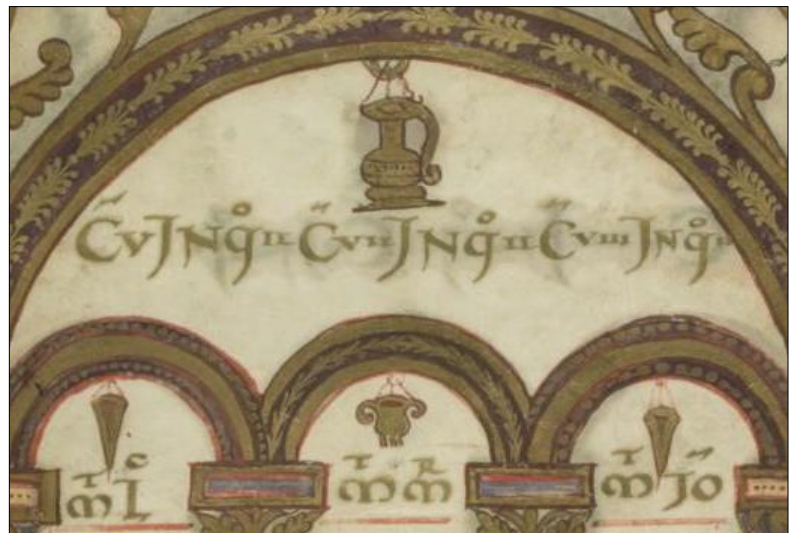 C̃ V JN q̊ II C̃ VII JN q̊ II C̃ VIII JN q̊ II
mᵀ Lᶜ mᵀ mᴿ mᵀ Jõ